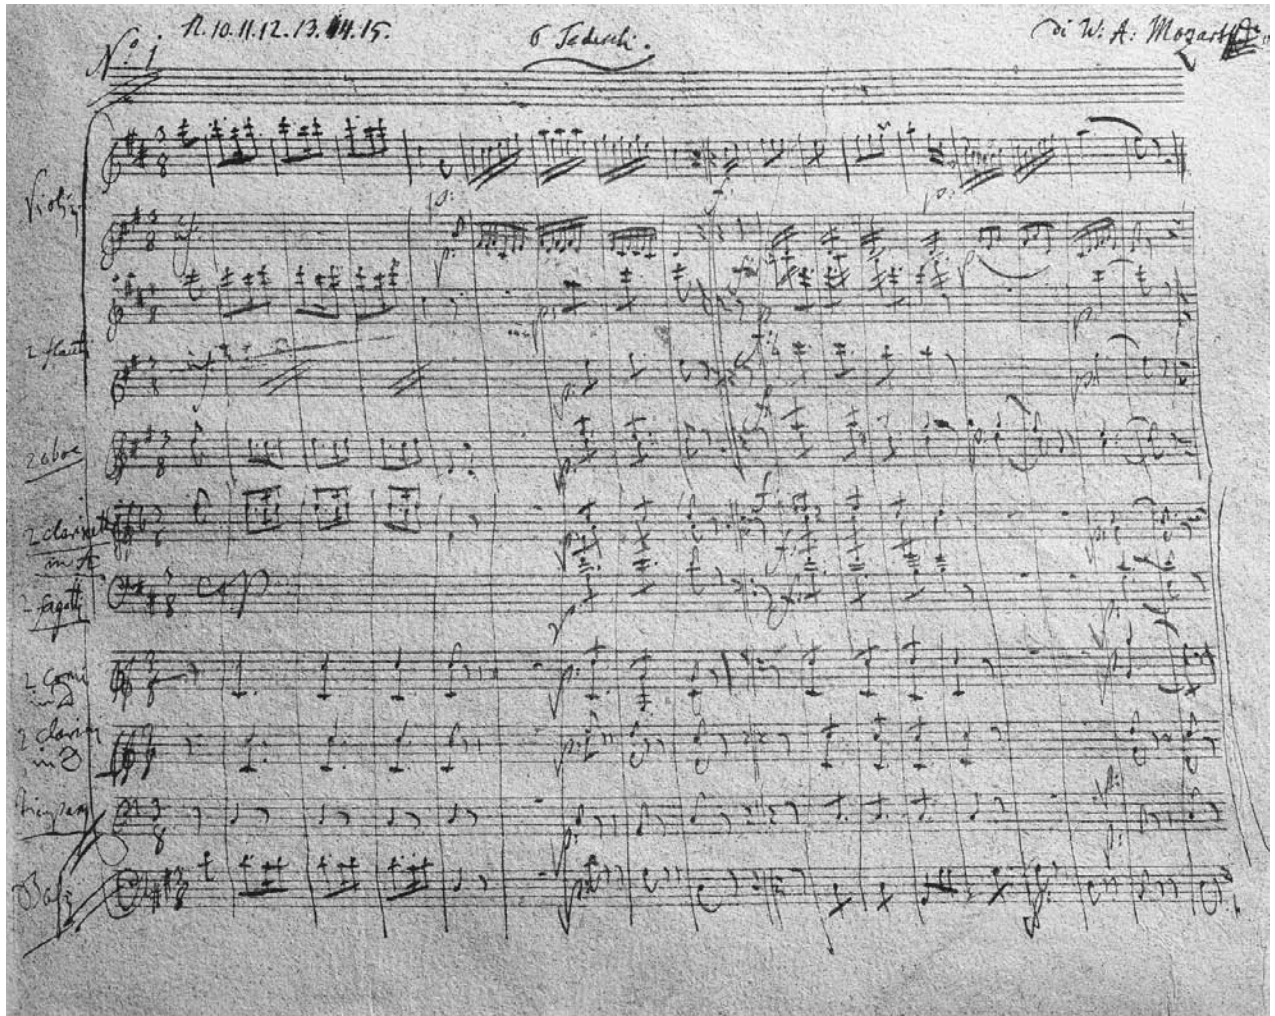 No: 1 n. 10. 11. 12. 13. 14. 15. 6 Tedeschi. di W: A: Mozart
Violin
2 flauti
2 oboe
2 clarinetti
in A
2 fagotti
2 Corni
in D
2 clarini
in D